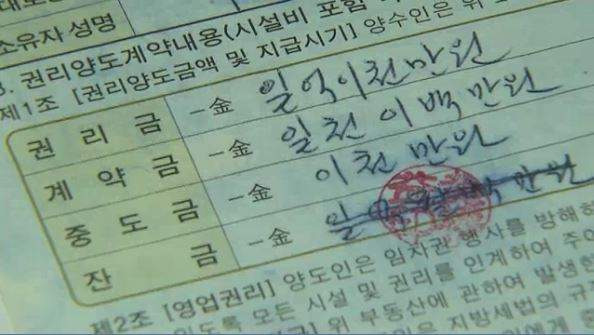 소유자 성명
권리양도계약내용(시설비 포함
제1조 [권리양도금액 및 지급시기] 양수인은 위
권 리 금 一金 일억이천만원
계 약 금 一金 일천 이백만원
중 도 금 一金 이천만원
잔 금 一金 만원
제2조 [영업권리] 양도인은 임차권 행사를 방해하
있도록 모든 시설 및 권리를 인계하여 주어
위 부동산에 관하여 발생한
지방세법의